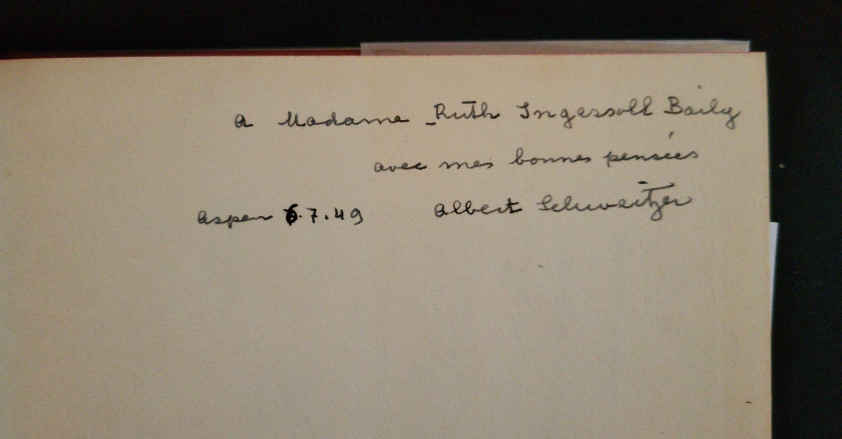 a Madame Ruth Ingersoll Baily
avec mes bonnes pensées
Aspen 6.7.49 Albert Schweitzer